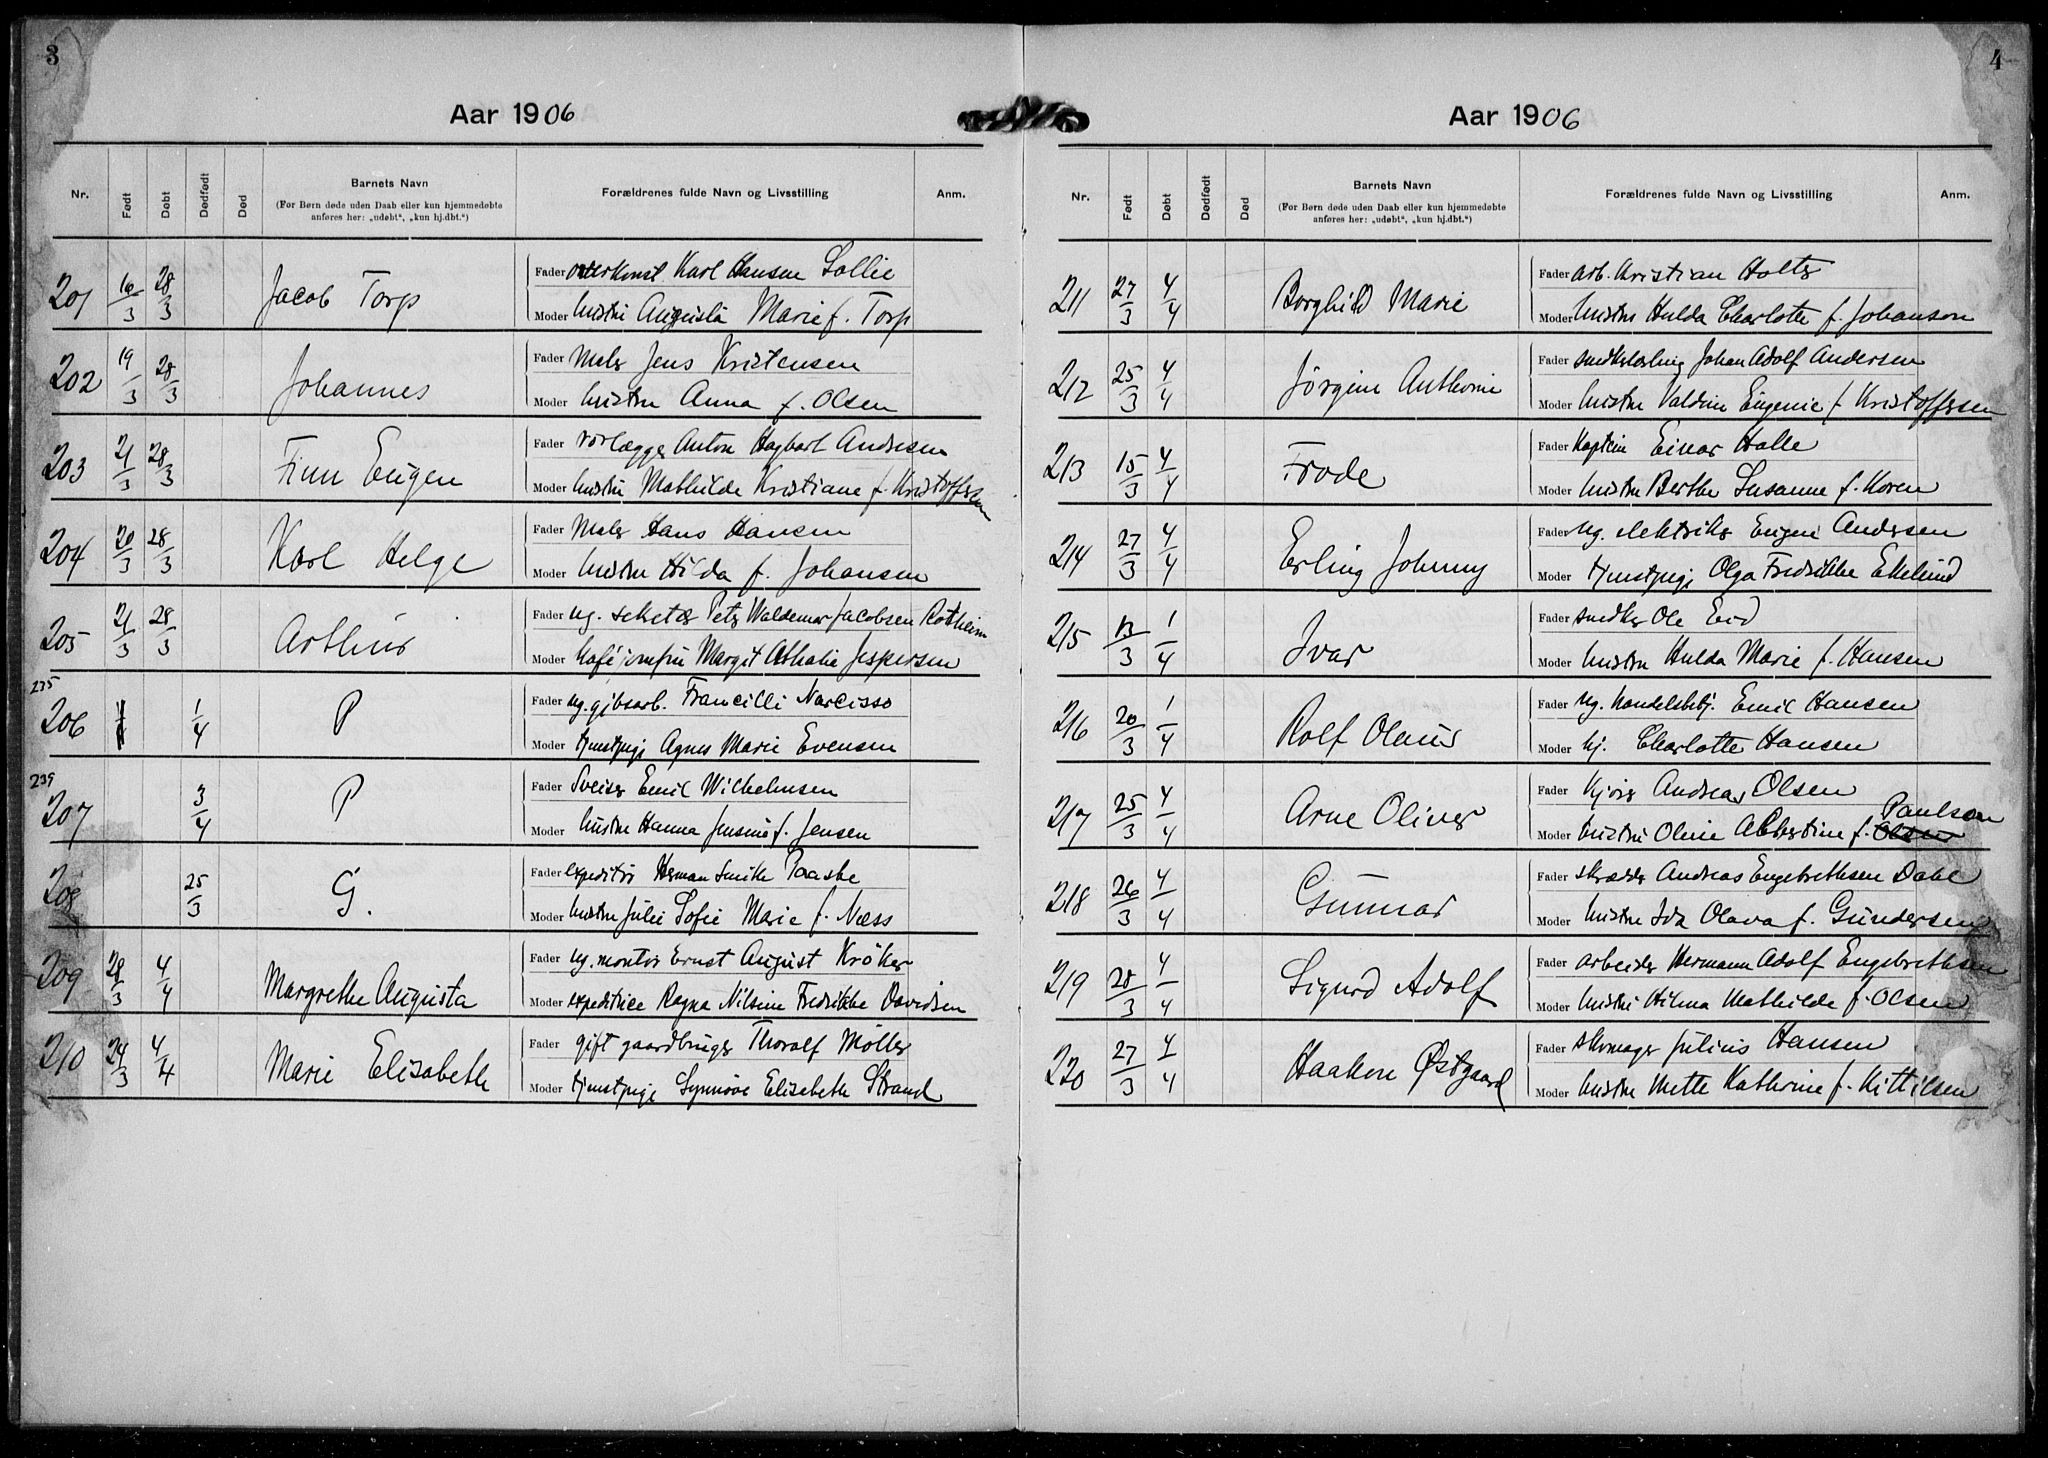 3
Aar 1906
Nr. Født Døbt Dødfødt Død Barnets Navn Forældrenes fulde Navn og Livsstilling Anm.
(For Børn døde uden Daab eller kun hjemmedøbte
anføres her: „udøbt“, „kun hj.dbt.“)
201 16/3 28/3 Jacob Torp
Fader Karl Hansen Sollie
Moder hustru Augusta Marie f. Torp
202 19/3 28/3 Johannes
Fader Maler Jens Kristensen
Moder hustru Anna f. Olsen
203 21/3 28/3 Finn Eugen
Fader rørlægger Anton Hagbart Andresen
Moder hustru Mathilde Kristiane f. Kristoffersen
204 20/3 28/3 Karl Helge
Fader Maler Hans Hansen
Moder hustru Hilda f. Johansen
205 21/3 28/3 Arthur
Fader ug. Peter Waldemar Jacobsen Rotheim
Moder kaféjomfru Margit Athalie Jespersen
235
206 1/4 P
Fader ug. gibsarb. Francilli Narcisso
Moder tjenstpige Agnes Marie Evensen
239
207 3/4 P
Fader Sveiser Emil Wilhelmsen
Moder hustru Hanna Jensine f. Jensen
208 25/3 G.
Fader expeditør Herman Smith Paaske
Moder hustru Julie Sofie Marie f. Næss
209 28/3 4/4 Margrethe Augusta
Fader ug. montør Ernst August Kröker
Moder expeditrice Ragna Nilsine Fredrikke Davidsen
210 24/3 4/4 Marie Elisabeth
Fader gift gaardbruger Thoralf Möller
Moder tjenstpige Synnöve Elisabeth Strand
4
Aar 1906
Nr. Født Døbt Dødfødt Død Barnets Navn Forældrenes fulde Navn og Livsstilling Anm.
(For Børn døde uden Daab eller kun hjemmedøbte
anføres her: „udøbt“, „kun hj.dbt.“)
211 27/3 4/4 Borghild Marie
Fader arb. Kristian Holter
Moder hustru Hulda Charlotte f. Johanson
212 25/3 4/4 Jörgine Anthonie
Fader Johan Adolf Andersen
Moder hustru Valdine Eugenie f. Kristoffersen
213 15/3 4/4 Frode
Fader Kaptein Einar Halle
Moder hustru Berthe Susanne f. Koren
214 27/3 4/4 Erling Johnny
Fader ug. elektriker Eugen Andersen
Moder tjenstpige Olga Fredrikke Ekelund
215 13/3 1/4 Ivar
Fader snedker Ole Eid
Moder hustru Hulda Marie f. Hansen
216 20/3 1/4 Rolf Olaus
Fader ug. handelsbetj. Emil Hansen
Moder hj. Charlotte Hansen
217 25/3 4/4 Arne Oliver
Fader kjører Andreas Olsen
Paulson
Moder hustru Oline Albertine f. Olsen
218 26/3 4/4 Gunnar
Fader skrædder Andreas Engebrethsen Dahl
Moder hustru Ida Olava f. Gundersen
219 28/3 4/4 Sigurd Adolf
Fader arbeider Hermann Adolf Engebrethsen
Moder hustru Hilma Mathilde f. Olsen
220 27/3 4/4 Haakon Østgaard
Fader skomager Julius Hansen
Moder hustru Mette Kathrine f. Kittilsen